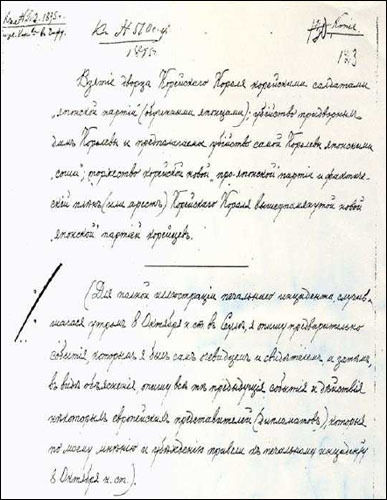 1895 г.
Копія
123
Взятіе дворца Корейскаго Короля корейскими солдатами
„японской партіи (обученными японцами); убійство придворных
дамъ Королевы и предполагаемое убійство самой Королевы японскими
„соши"; торжество корейской новой про-японской партіи и фактиче-
скій плѣнъ (или арестъ) Корейскаго Короля вышеупомянутой новой
„японской партіей корейцевъ.
(Для полной иллюстраціи печальнаго инцидента, случив-
шагося утромъ 8 Октября н. ст. въ Сеулѣ, я опишу предварительно
событія которымъ я былъ самъ очевидцемъ и свидѣтелемъ и затѣмъ,
въ видѣ объясненія, опишу всѣ тѣ предыдущія событія и дѣйствія
нѣкоторыхъ европейскихъ представителей (дипломатовъ) которыя
по моему мнѣнію и убѣжденію привели къ печальному инциденту
8 Октября н. ст.).